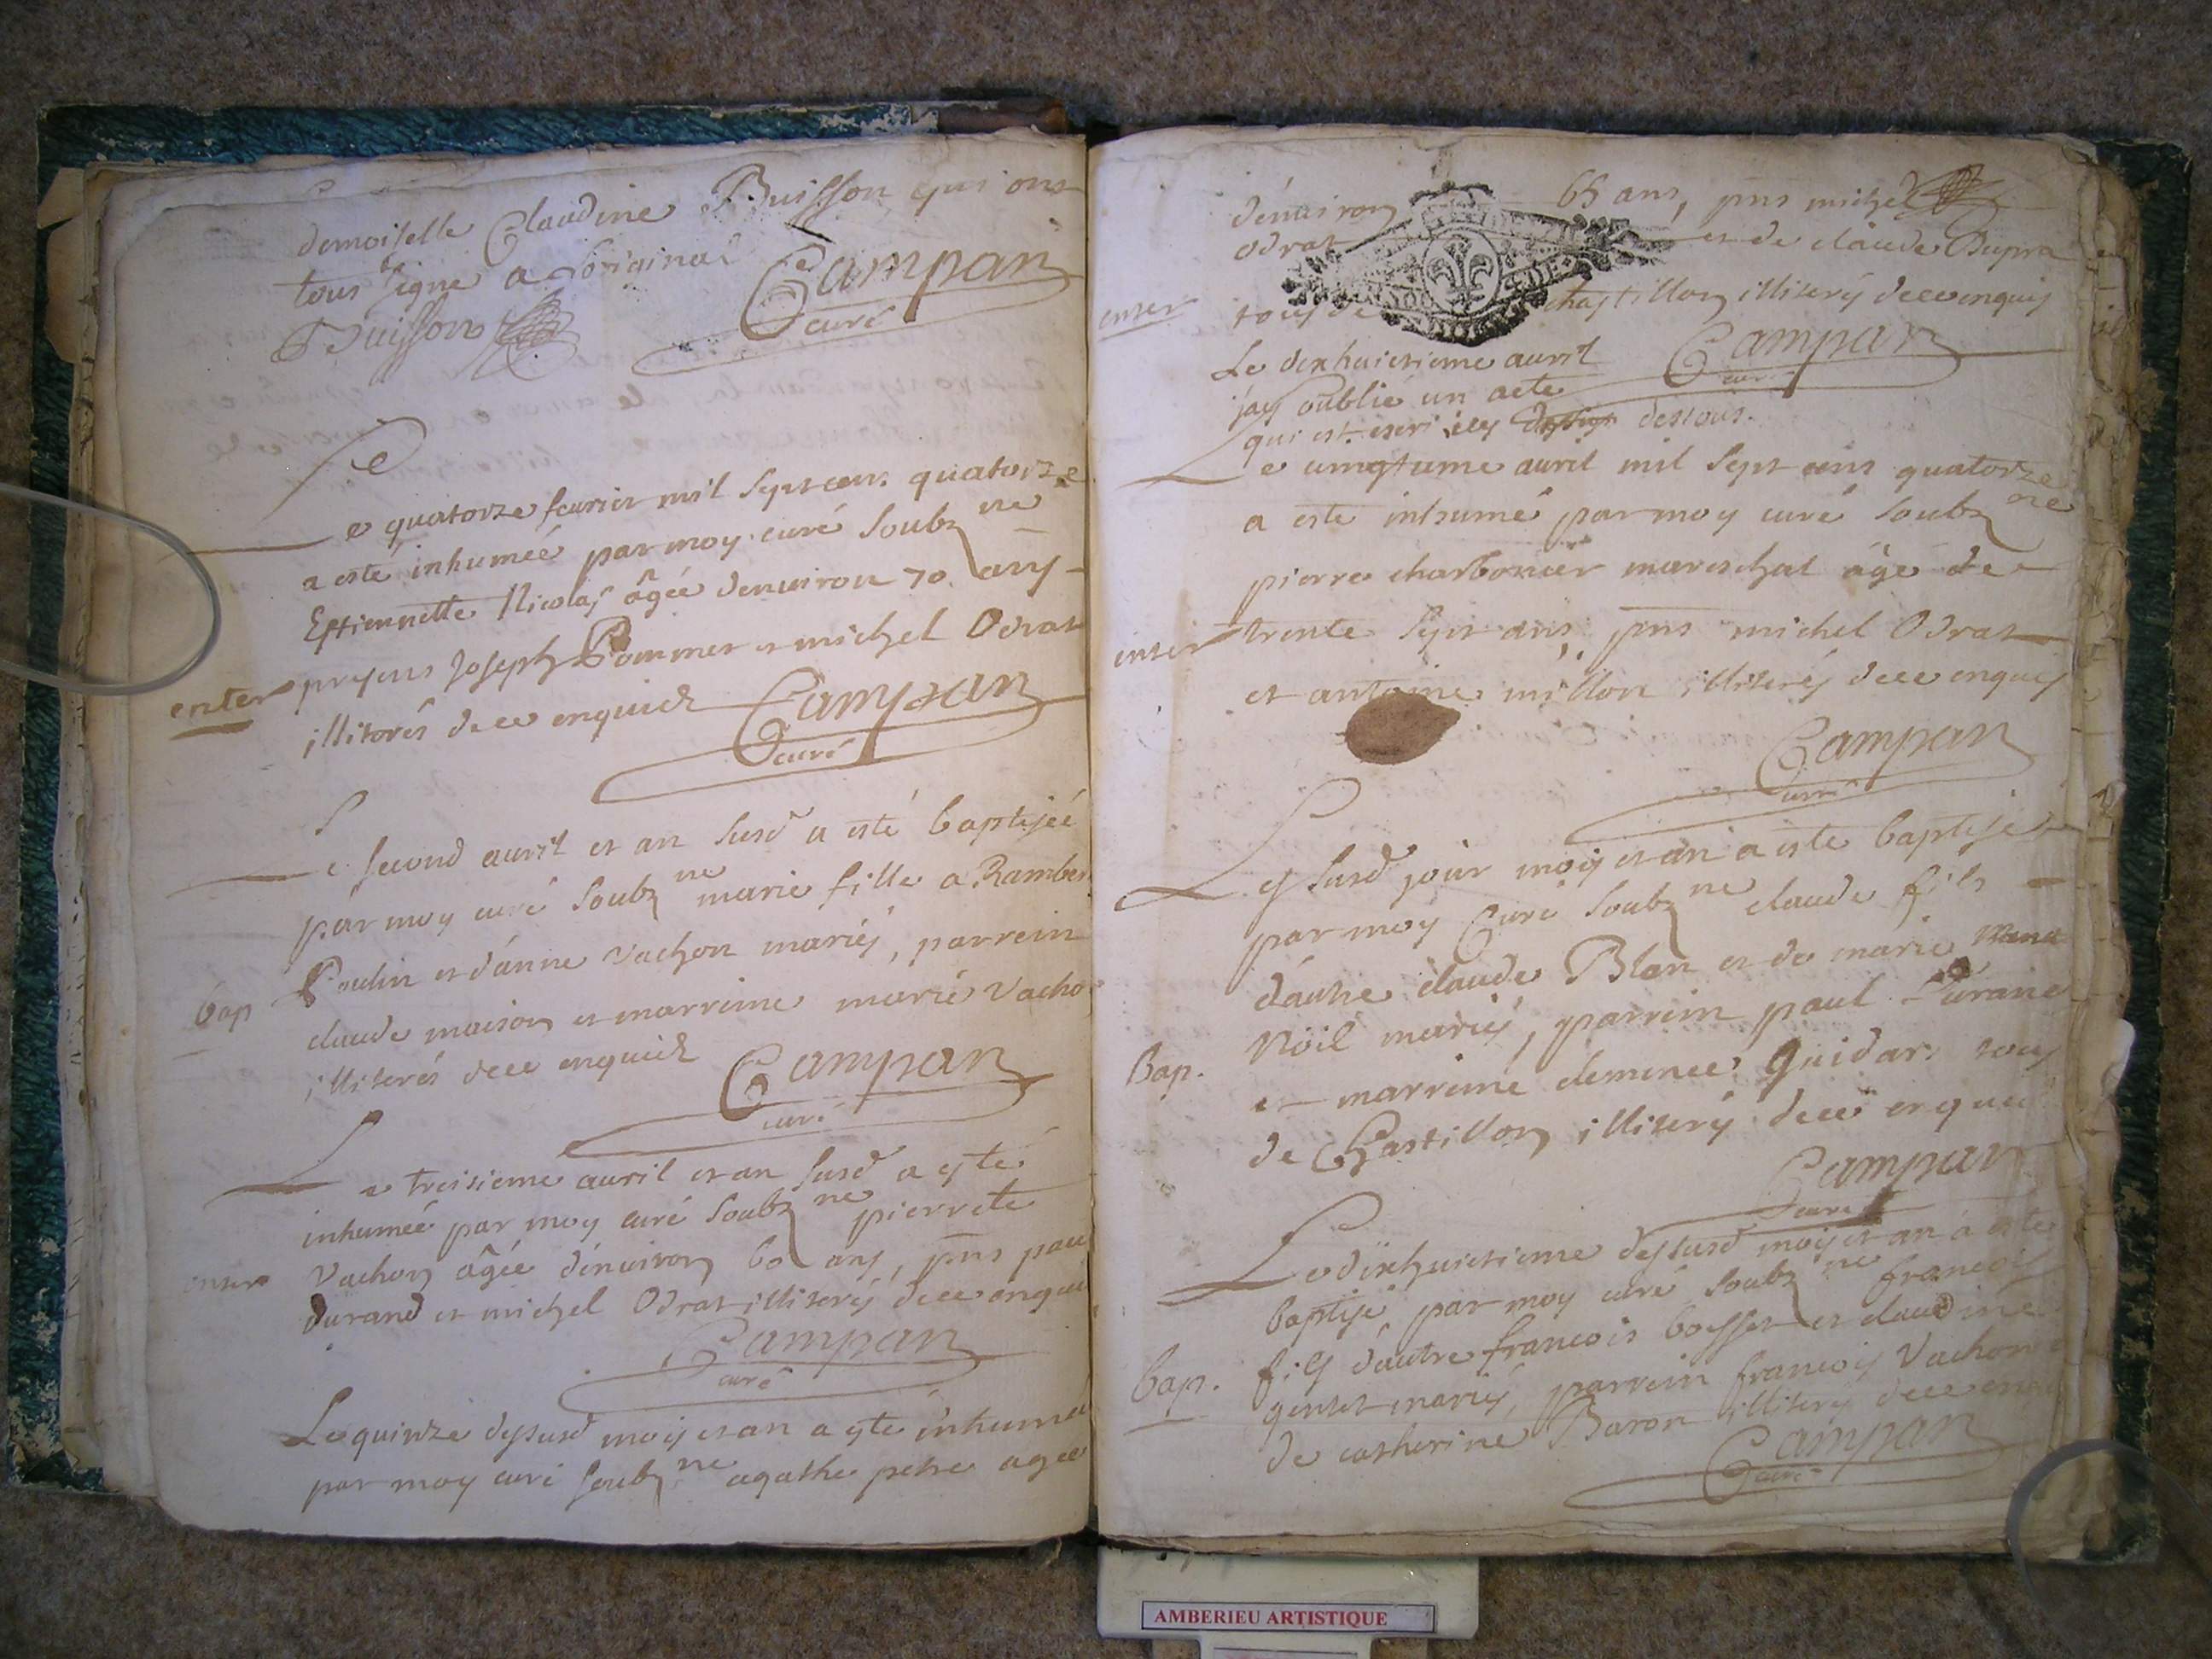 demoiselle Claudine Buisson qui ont
tous signé a Loriginal Campan
curé
Buisson
Le quatorze feurier mil sept cens quatorze
a esté inhumée par moy curé soubz ne
Estiennette Nicolas âgée denuiron 70 ans
enter presens Joseph Pommet et michel Odrat
illitorés dece enquid Campan
curé
Le second auril et an susd a esté baptisée
par moy curé soubz ne marie fille a Rambert
bap Poulin et d'anne Vachon mariés, parrein
claude maison et marreine marie Vachon
illiterés dece enquid Campan
curé
Le troisieme auril et an susd a esté
inhumée par moy curé soubz ne pierrete
enter Vachon âgée dénuiron 60 ans, pns paul
durand et michel Odrat illiterés dece enquis
Campan
curé
Le quinze desusd mois et an a esté inhumée
par moy curé soubz ne agathe petre agee
dénuiron 65 ans, pns michel
Odrat et de claude Dupra
enter tous de chastillon illiterés dece enquis
Le dixhuictieme auril Campan
curé
jay oublié un acte
qui est escri icy dessous.
Le uingtume auril mil sept cens quatorze
a esté inhumé par moy curé soubz ne
pierre charbonier mareschal âgé de
enter trente sept ans, pns michel Odrat
et antoine millon illiterés dece enquis
Campan
curé
Les susd jour mois et an a esté baptisé
par moy Curé soubz ne claude fils
d'autre claude Blan et de marie
Nöil mariés, parrein paul Durane
Bap. et marreine clemence Guidar tous
de Chastillon illiterés dece enquis
Campan
curé
Le dixhuictieme desusd mois et an a esté
baptisé par moy curé soubz ne francois
bap. fils d'autre francois bosset et claudine
gentet mariés, parrein francois Vachon
de catherine Baron illiterés dece
Campan
curé
AMBERIEU ARTISTIQUE